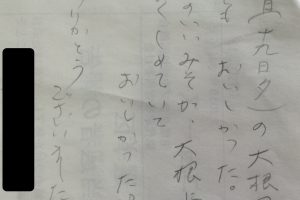 九日夕)の大根
も おいしかった。
のいいみそが、大根に
くしめていて
おいしかった。
りがとう
ございました